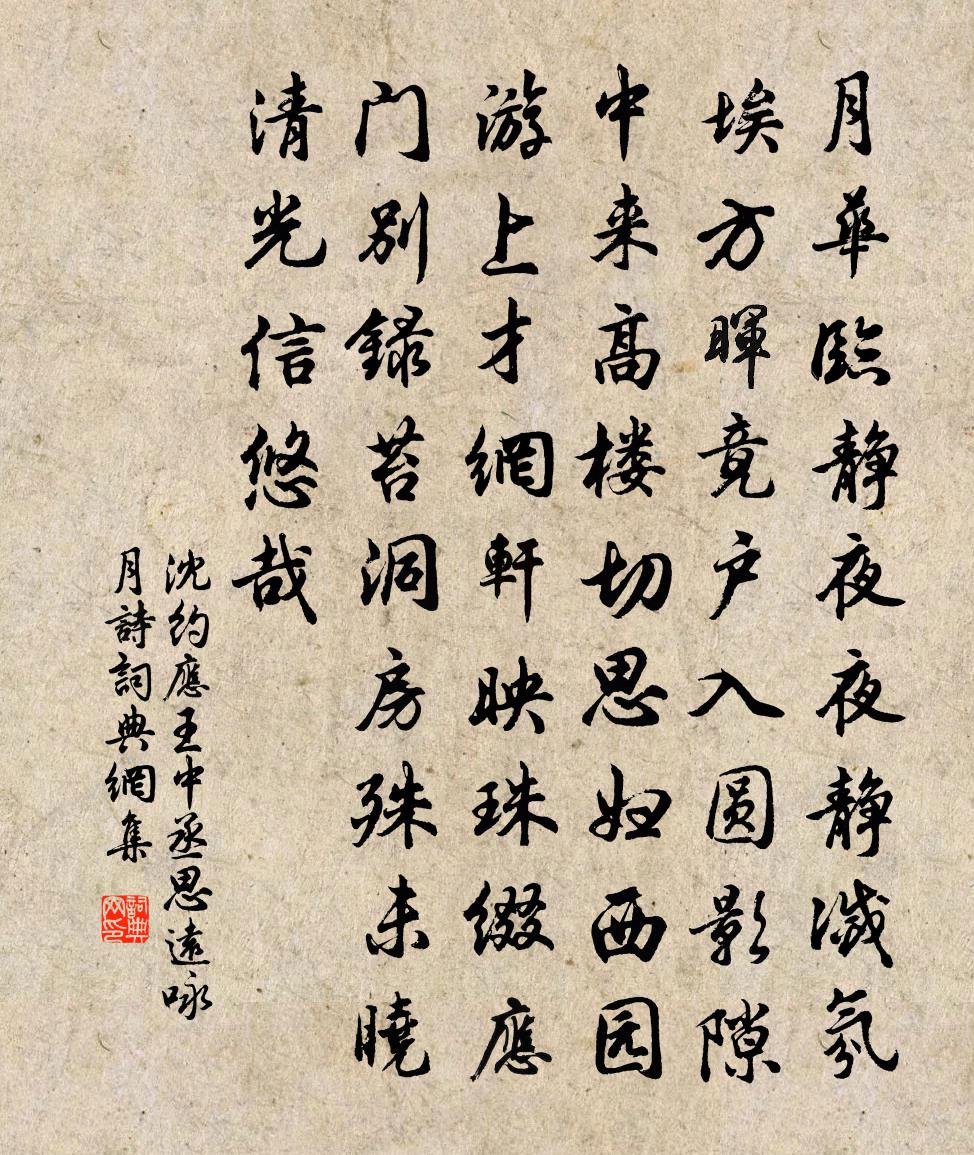 月華臨静夜夜静滅氛
埃方暉竟户入圆影隙
中来高楼切思妇西园
游上才網軒映珠綴應
门别録苔洞房殊未曉
清光信悠哉
沈约應王中丞思遠咏
月詩詞典網集
詞典網印